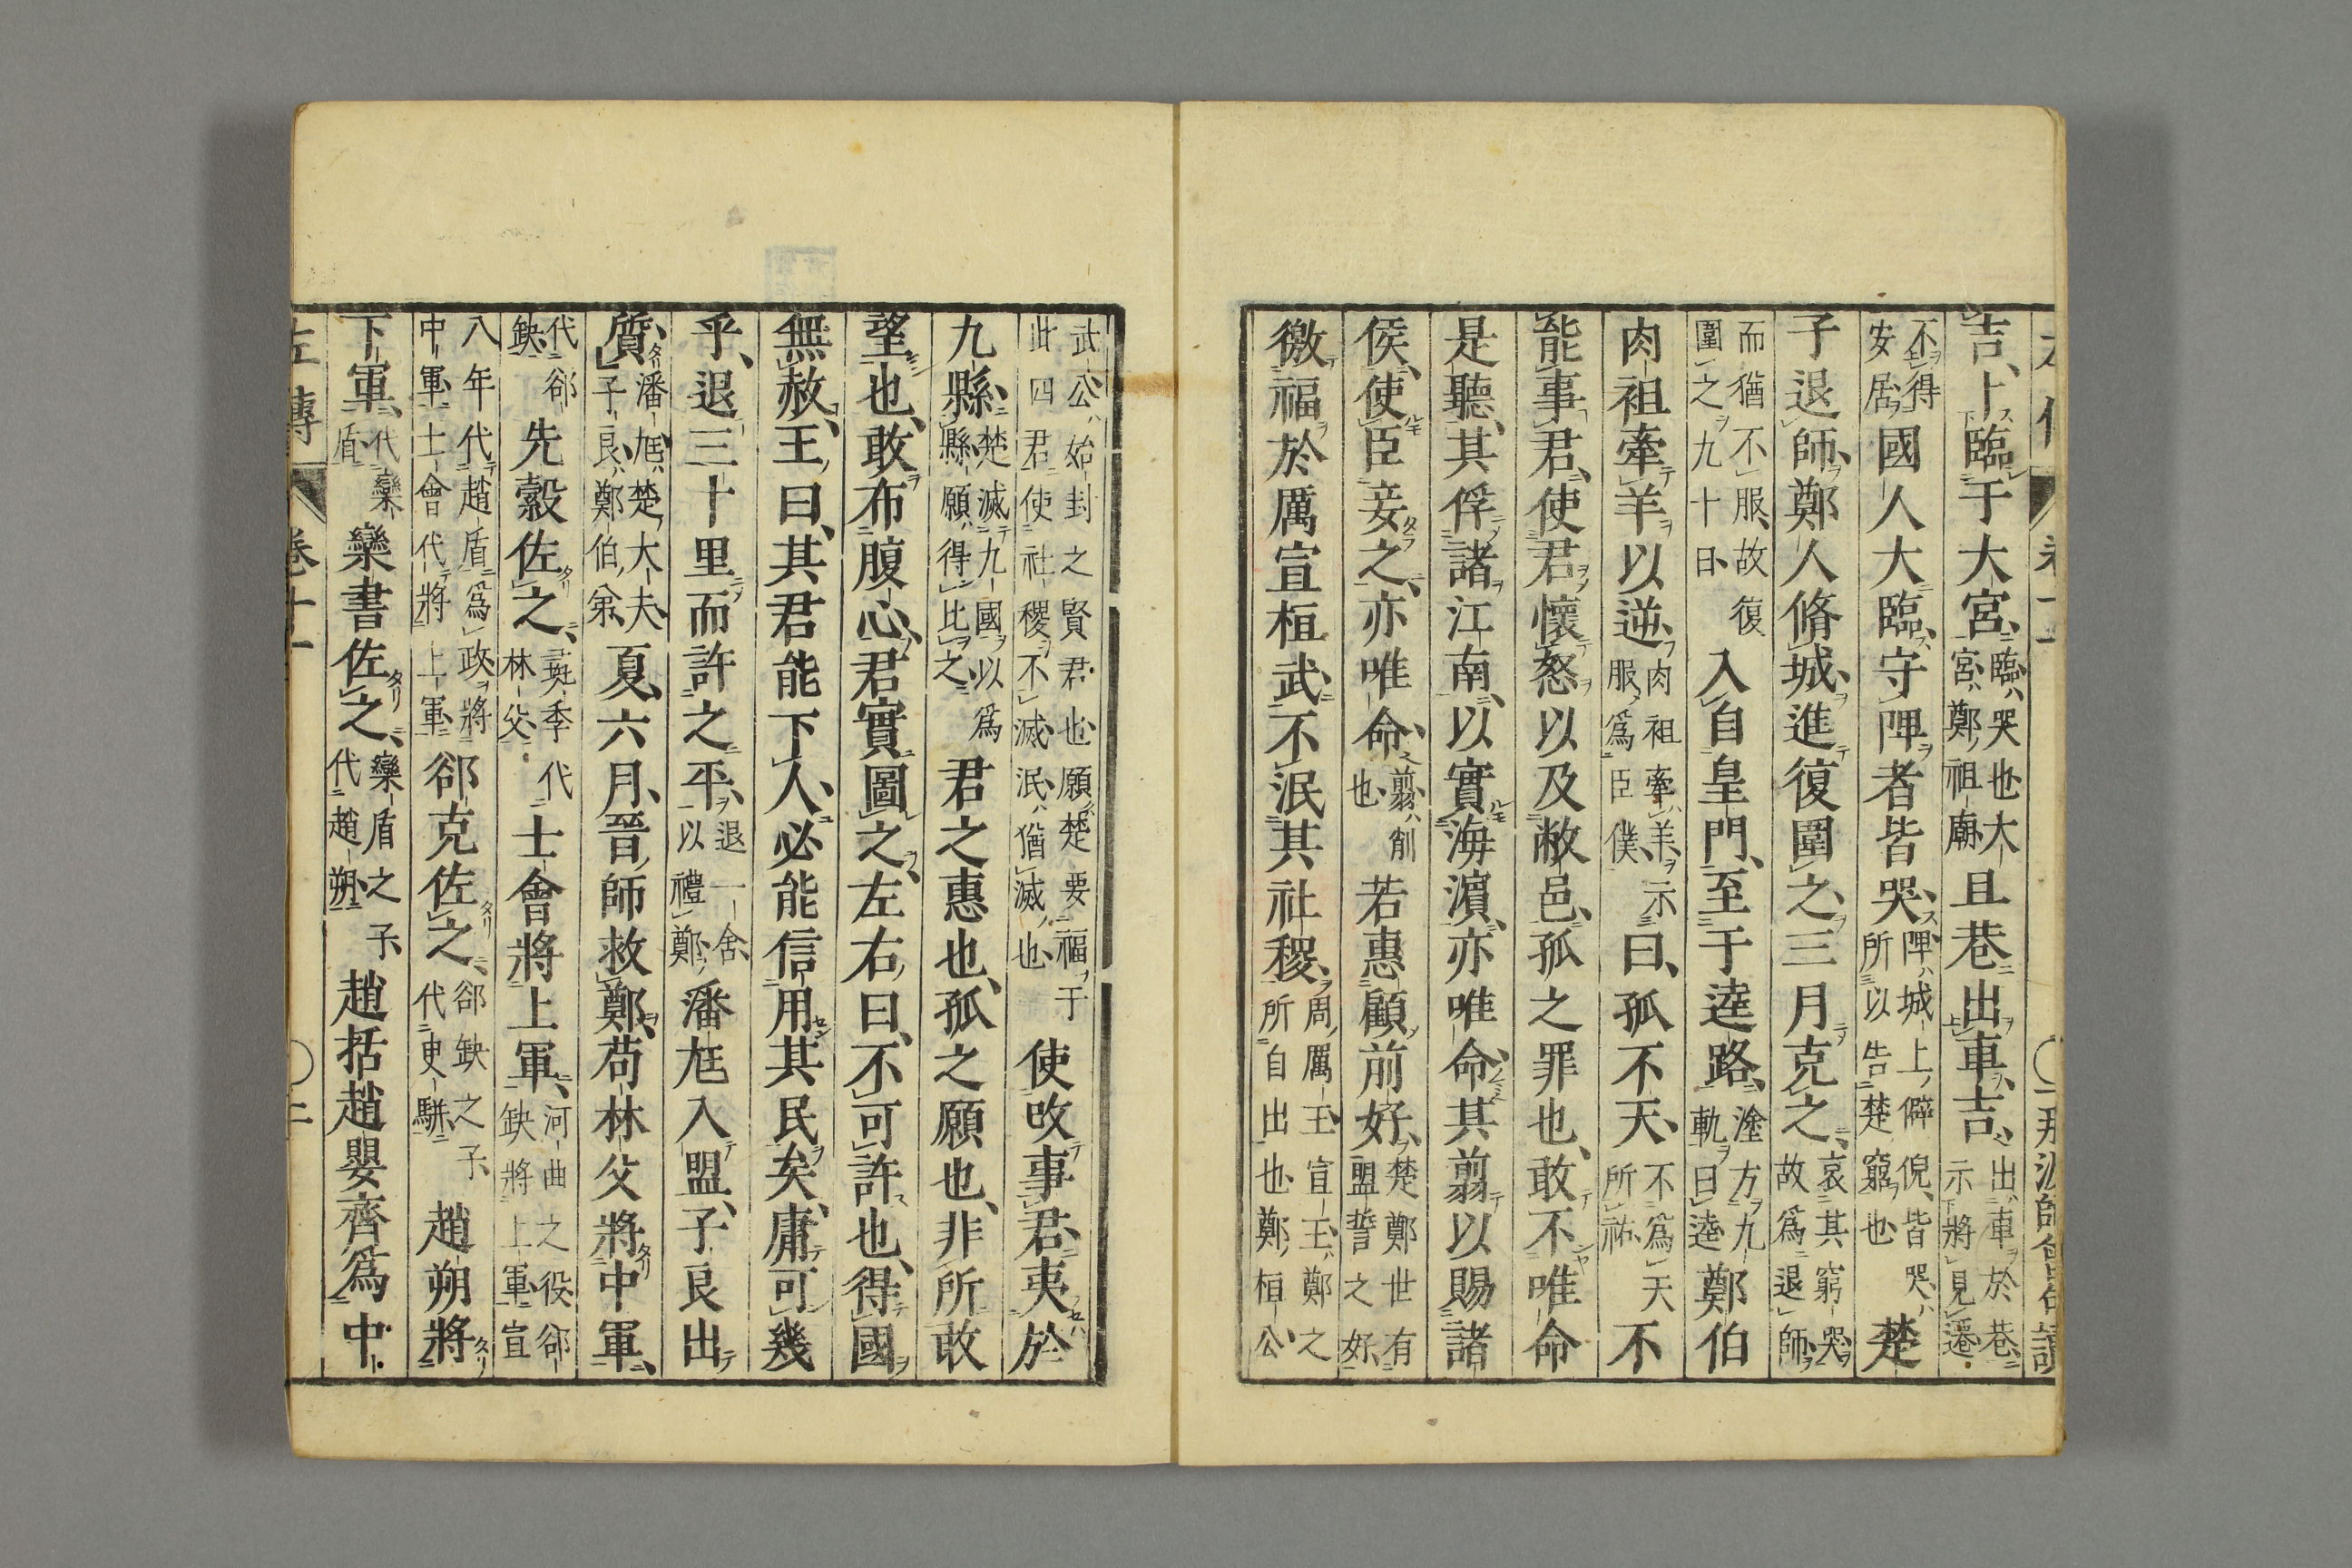 吉、卜臨于大宮、臨哭也大宮鄭祖廟且巷出車、吉、出車於巷示將見遷
不得安居國人大臨、守陴者皆哭、陴城上僻倪皆哭所以告楚窮也楚
子退師、鄭人脩城、進復圍之、三月克之、哀其窮哭故爲退師
而猶不服故復圍之九十日入自皇門、至于逵路、塗方九軌曰逵鄭伯
肉袒牽羊以逆、肉袒牽羊示服爲臣僕曰、孤不天、不爲天所祐不
能事君、使君懷怒以及敝邑、孤之罪也、敢不唯命
是聽、其俘諸江南、以實海濵、亦唯命、其翦以賜諸
侯、使臣妾之、亦唯命、翦削也若惠顧前好、楚鄭世有盟誓之好
徼福於厲宣桓武、不泯其社稷、周厲王宣王鄭之所自出也鄭桓公
武公始封之賢君也願楚要福于此四君使社稷不滅泯猶滅也使改事君、夷於
九縣、楚滅九國以爲縣願得比之君之惠也、孤之願也、非所敢
望也、敢布腹心、君實圖之、左右曰、不可許也、得國
無赦、王曰、其君能下人、必能信用其民矣、庸可幾
乎、退三十里而許之平、退一舍以禮鄭潘尫入盟、子良出
質、潘尫楚大夫子良鄭伯弟夏、六月、晉師救鄭、荀林父將中軍、
代郤缺先縠佐之、彘季代林父士會將上軍、河曲之役郤缺將上軍宣
八年代趙盾爲政將中軍士會代將上軍郤克佐之、郤缺之子代臾駢趙朔將
下軍、代欒盾欒書佐之、欒盾之子代趙朔趙括趙嬰齊爲中
左傳 卷十一 〇二